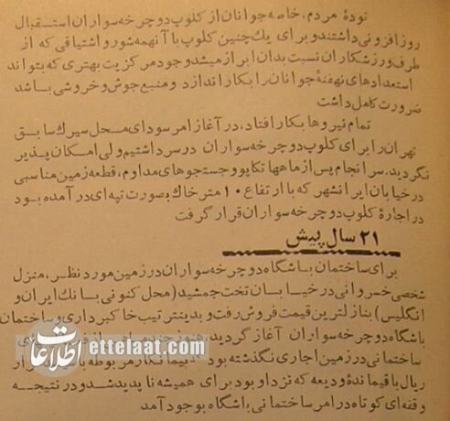 تودهٔ مردم، خاصه جوانان از کلوپ دوچرخه سواران استقبال
روزافزونی داشتند و برای یک چنین کلوپ با آنهمه شور و اشتیاقی که از
طرف ورزشکاران نسبت بدان ابراز میشد وجود مرکزیت بهتری که بتواند
استعدادهای نهفتهٔ جوانان را بکار اندازد و منبع جوش و خروشی باشد
ضرورت کامل داشت
تمام نیروها بکار افتاد، در آغاز امر سودای محل سیرک سابق
تهران را برای کلوپ دوچرخه سواران در سر داشتیم ولی امکان پذیر
نگردید. سرانجام پس از ماهها تکاپو و جستجوهای مداوم، قطعه زمین مناسبی
در خیابان ایرانشهر که با ارتفاع ۱۰ متر خاک بصورت تپه ای درآمده بود
در اجارهٔ کلوپ دوچرخه سواران قرار گرفت
۲۱ سال پیش
برای ساختمان باشگاه دوچرخه سواران در زمین مورد نظر، منزل
شخصی خسروانی در خیابان تخت جمشید (محل کنونی بانک ایران و
انگلیس) بنازلترین قیمت فروش رفت و بدینترتیب خاکبرداری و ساختمان
باشگاه دوچرخه سواران آغاز گردید
ساختمانی در زمین اجاری نگذشته بود پیمانکار مربوطه با
ریال باقیماندهٔ ودیعه که نزد او بود برای همیشه ناپدید شد و در نتیجه
وقفه ای کوتاه در امر ساختمانی باشگاه بوجود آمد
اطلاعات ettelaat.com